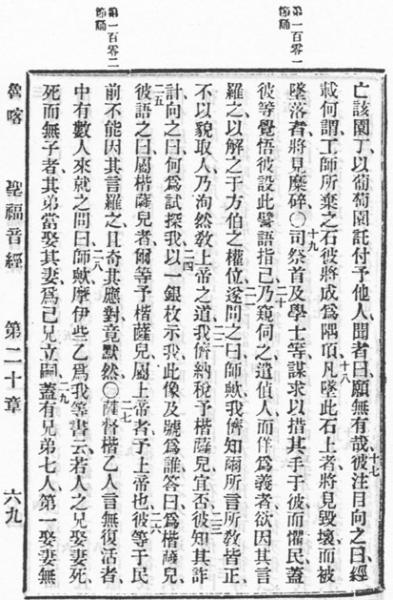 第一百零一
第一百零二
亡該園丁以葡萄園託付予他人聞者曰願無有哉彼注目向之曰經
十七
載何謂工師所棄之石彼將成爲隅頂凡墜此石上者將見毀壞而被
十八
墜落者將見糜碎○司祭首及學士等謀求以措其手于彼而懼民蓋
十九
彼等覺悟彼設此譬語指己乃窺伺之遣偵人而佯爲義者欲因其言
二十
羅之以解之于方伯之權位遂問之曰師歟我儕知爾所言所敎皆正
二一
不以貌取人乃洵然敎上帝之道我儕納稅予楷薩兒宜否彼知其詐
二二
二三
計向之曰何爲試探我以一銀枚示我此像及號爲誰答曰爲楷薩兒
二四
彼語之曰屬楷薩兒者爾等予楷薩兒屬上帝者予上帝也彼等于民
二五
二六
前不能因其言羅之且奇其應對竟默然○薩督楷乙人言無復活者
二七
中有數人來就之問曰師歟摩伊些乙爲我等書云若人之兄娶妻死
二八
死而無子者其弟當娶其妻爲己兄立嗣蓋有兄弟七人第一娶妻無
二九
魯喀 聖福音經 第二十章 六九